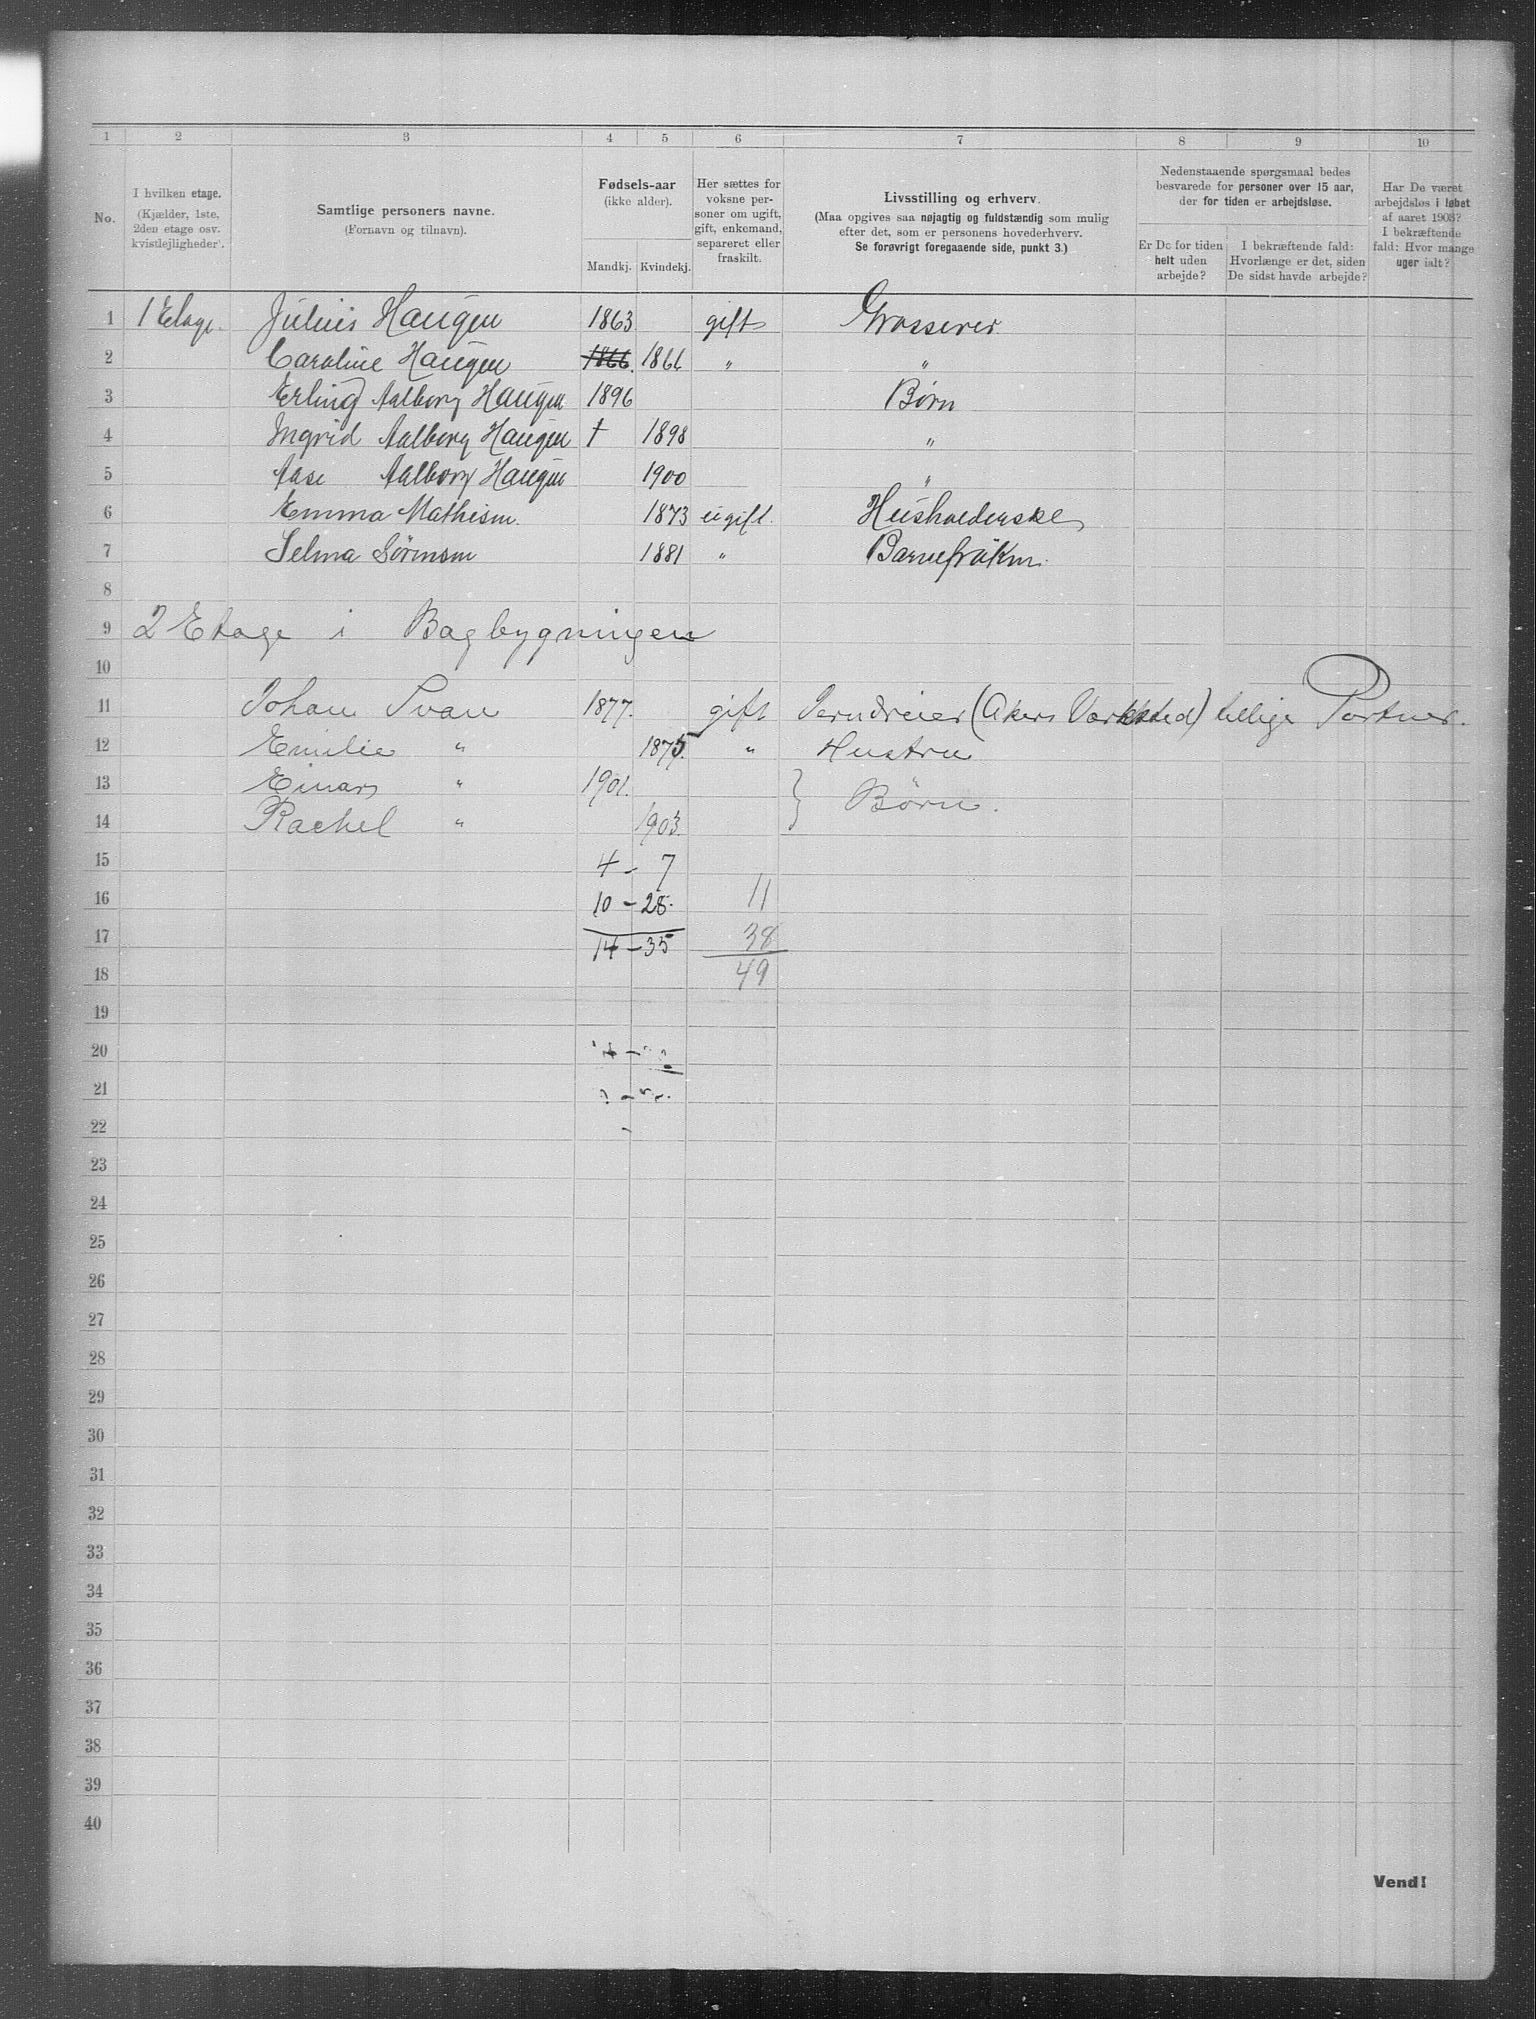 1 2 3 4 5 6 7 8 9 10
No.
I hvilken etage.
(Kjælder, 1ste,
2den etage osv.
kvistlejligheder).
Samtlige personers navne.
(Fornavn og tilnavn).
Fødsels-aar
(ikke alder).
Mandkj. Kvindekj.
Her sættes for
voksne per-
soner om ugift,
gift, enkemand,
separeret eller
fraskilt.
Livsstilling og erhverv.
(Maa opgives saa nøjagtig og fuldstændig som mulig
efter det, som er personens hovederhverv.
Se forøvrigt foregaaende side, punkt 3.)
Nedenstaaende spørgsmaal bedes
besvarede for personer over 15 aar,
der for tiden er arbejdsløse.
Er De for tiden
helt uden
arbejde?
I bekræftende fald:
Hvorlænge er det, siden
De sidst havde arbejde?
Har De været
arbejdsløs i løbet
af aaret 1903?
I bekræftende
fald: Hvor mange
uger ialt?
1 1 Etage. Julius Haugen 1863 gift Grosserer
2 Caroline Haugen 1866. 1866 " "
3 Erling Aalborg Haugen 1896 Børn
4 Ingrid Aalborg Haugen † 1898 "
5 Aase Aalborg Haugen 1900 "
6 Emma Mathisen. 1873 ugift. Husholderske
7 Selma Sørensen 1881 " Barnefrøken.
8
9 2 Etage i Bagbygningen
10
11 Johan Svan 1877. gift Jerndreier (Akers Værksted) tillige Portner.
12 Emilie " 1875. " Hustru
13 Einar " 1901. } Børn.
14 Rachel " 1903.
15 4 - 7
16 10 - 28. 11
17 14 - 35 38
18 49
19
20
21
22
23
24
25
26
27
28
29
30
31
32
33
34
35
36
37
38
39
40
Vend!